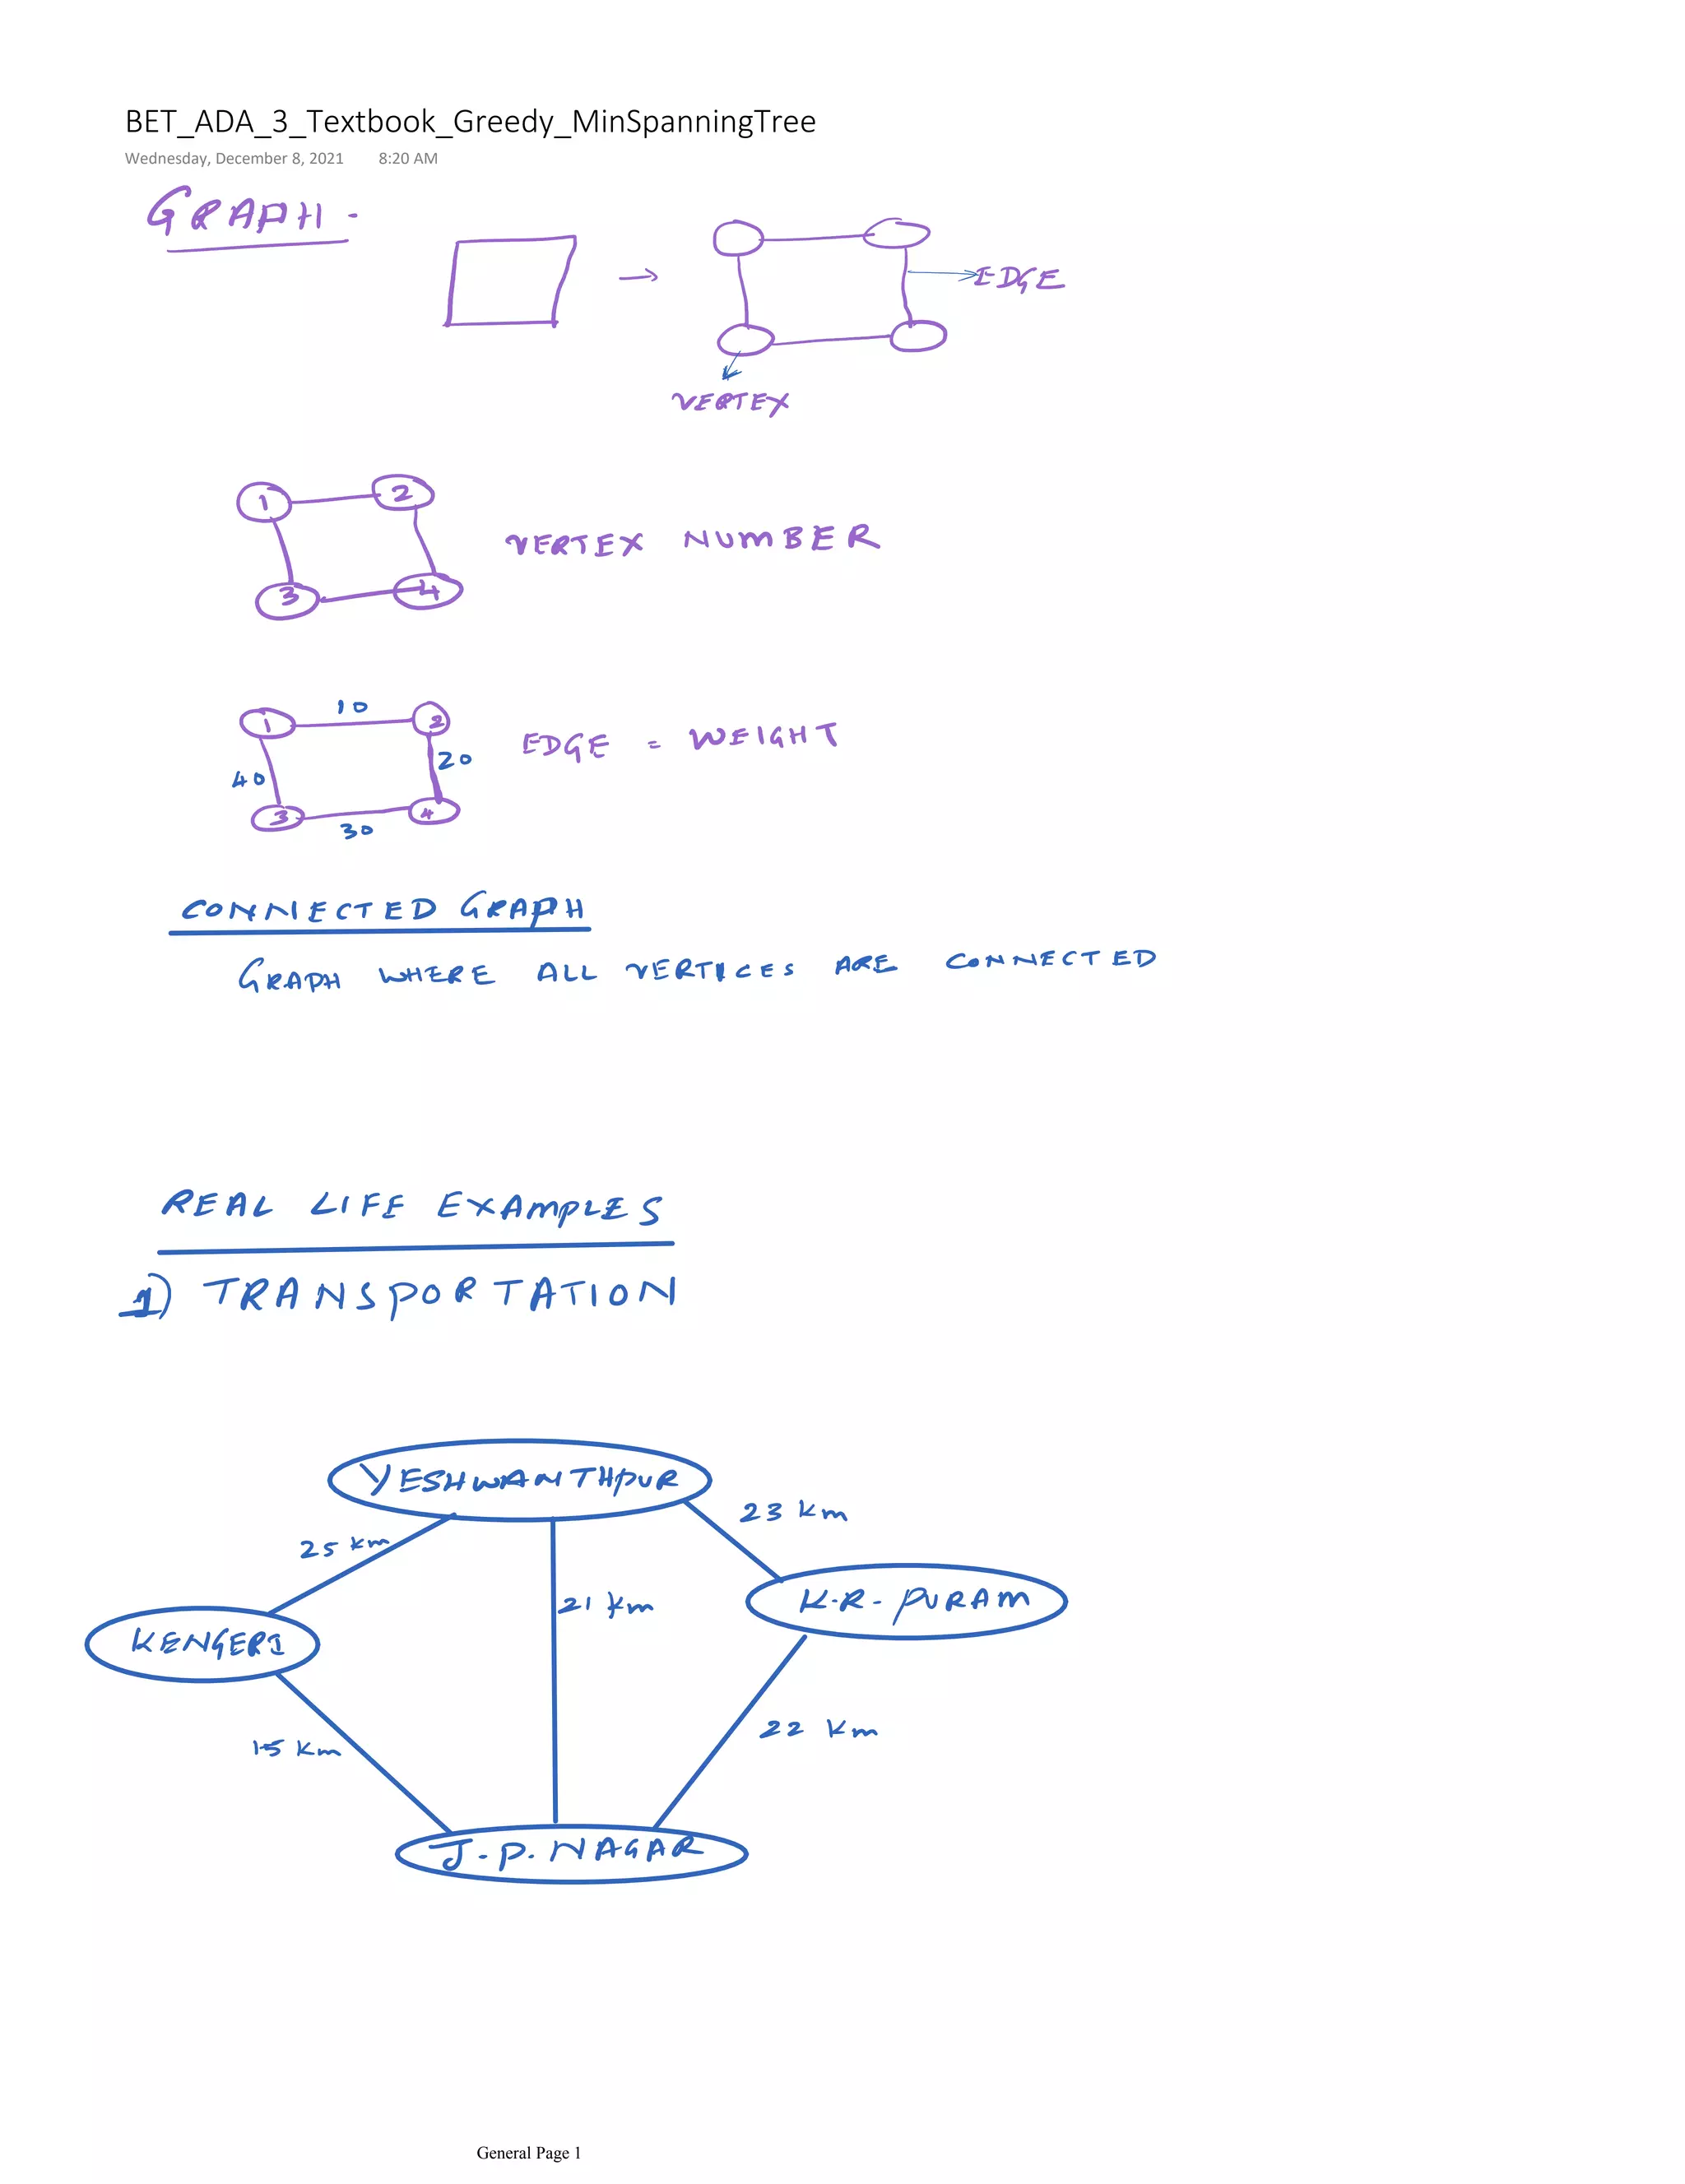 BET_ADA_3_Textbook_Greedy_MinSpanningTree
Wednesday, December 8, 2021 8:20 AM
GRAPH -
EDGE
VERTEX
1 2
VERTEX NUMBER
3 4
10
1 2
EDGE = WEIGHT
20
40
3 4
30
CONNECTED GRAPH
GRAPH WHERE ALL VERTICES ARE CONNECTED
REAL LIFE EXAMPLES
1) TRANSPORTATION
YESHWANTHPUR
23 km
25 km
K.R. PURAM
21 km
KENGERI
22 km
15 km
J.P. NAGAR
General Page 1